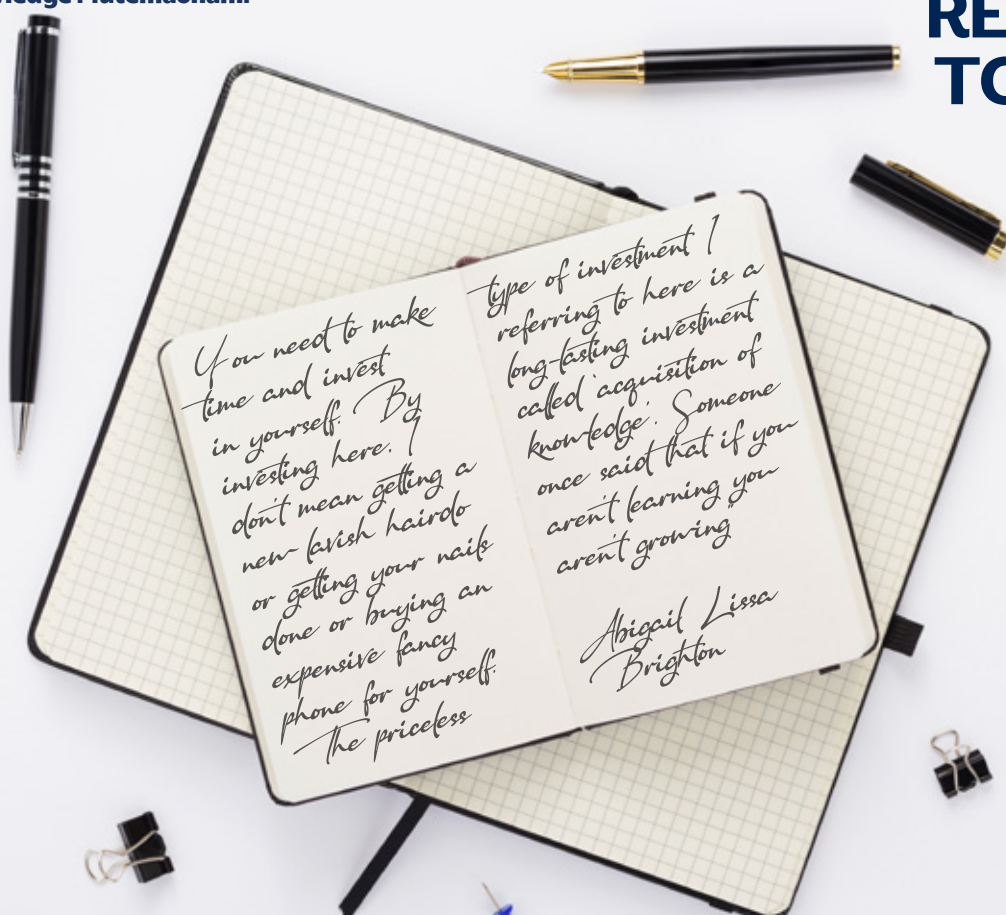 RE
TO
You need to make
time and invest
in yourself. By
investing here. I
don't mean getting a
new lavish hairdo
or getting your nails
done or buying an
expensive fancy
phone for yourself.
The priceless
type of investment I
referring to here is a
long-lasting investment
called 'acquisition of
knowledge'. Someone
once said that if you
aren't learning you
aren't growing"
Abigail Lissa
Brighton